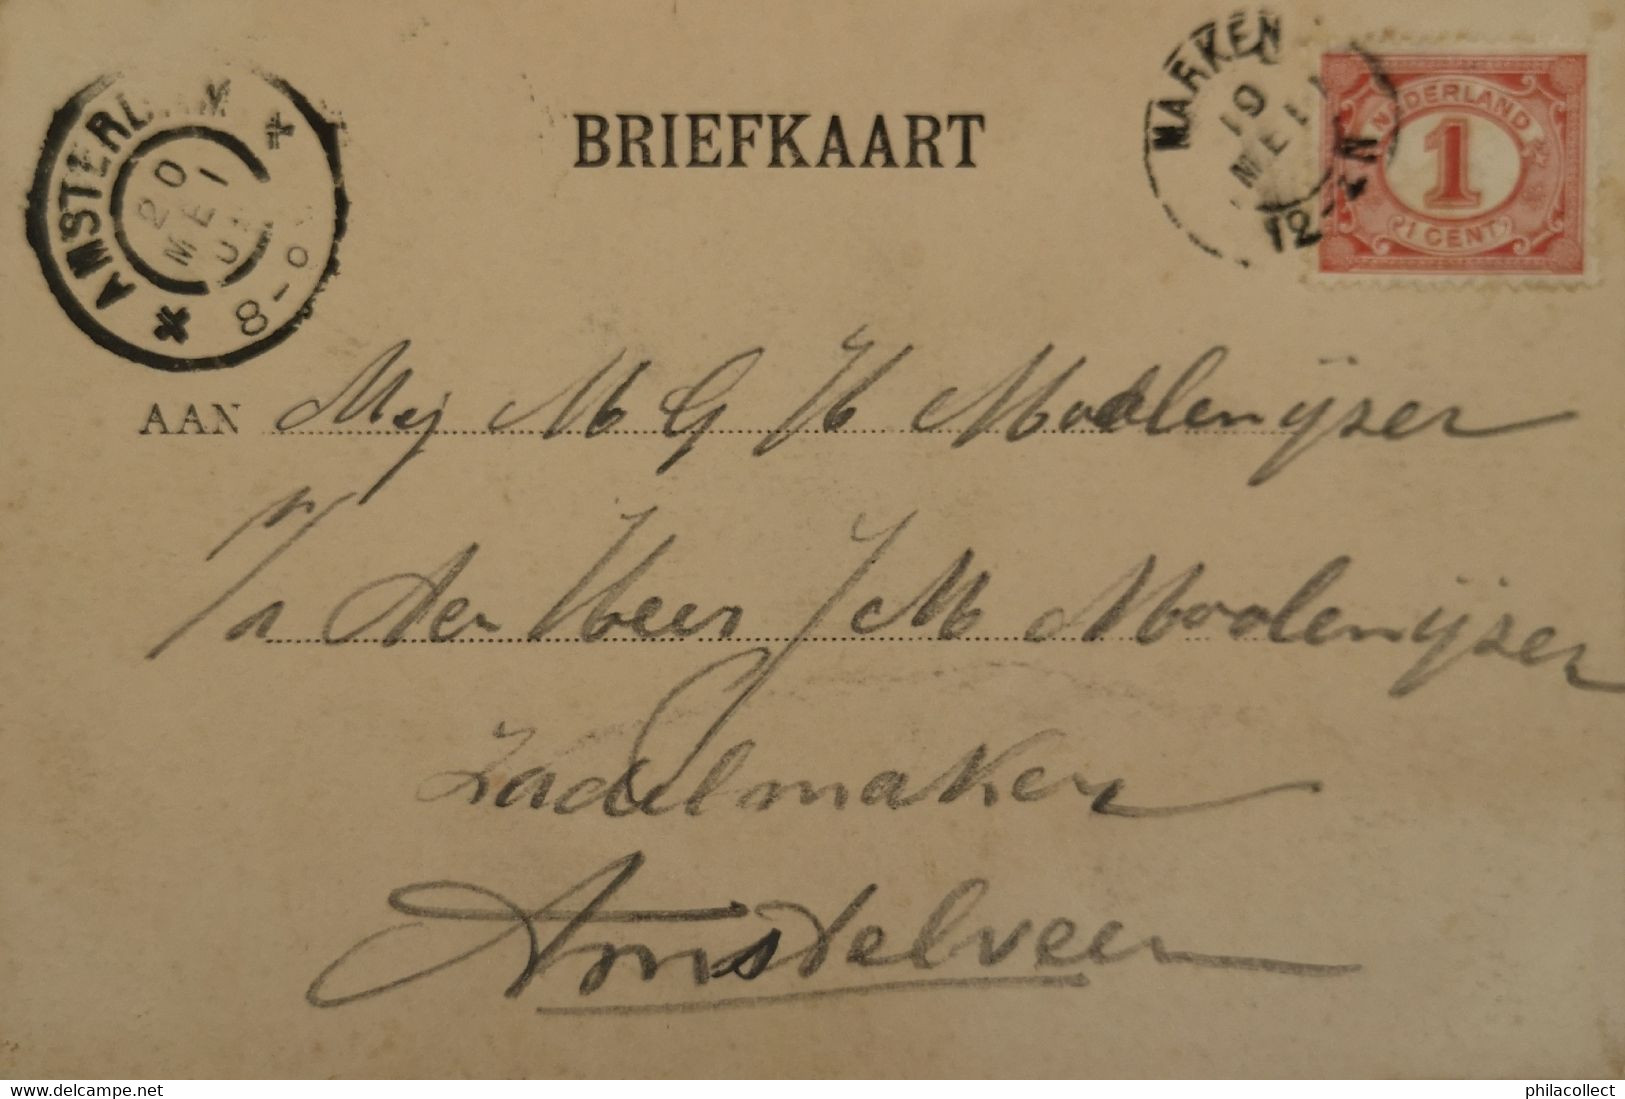 BRIEFKAART
MARKEN
19
MEI
12-1N
NEDERLAND
1
1 CENT
AMSTERDAM
20
MEI
8-
AAN Mej M G H Moolenijzer
p/a den Heer J M Moolenijzer
Zadelmaker
Amstelveen
www.delcampe.net
philacollect